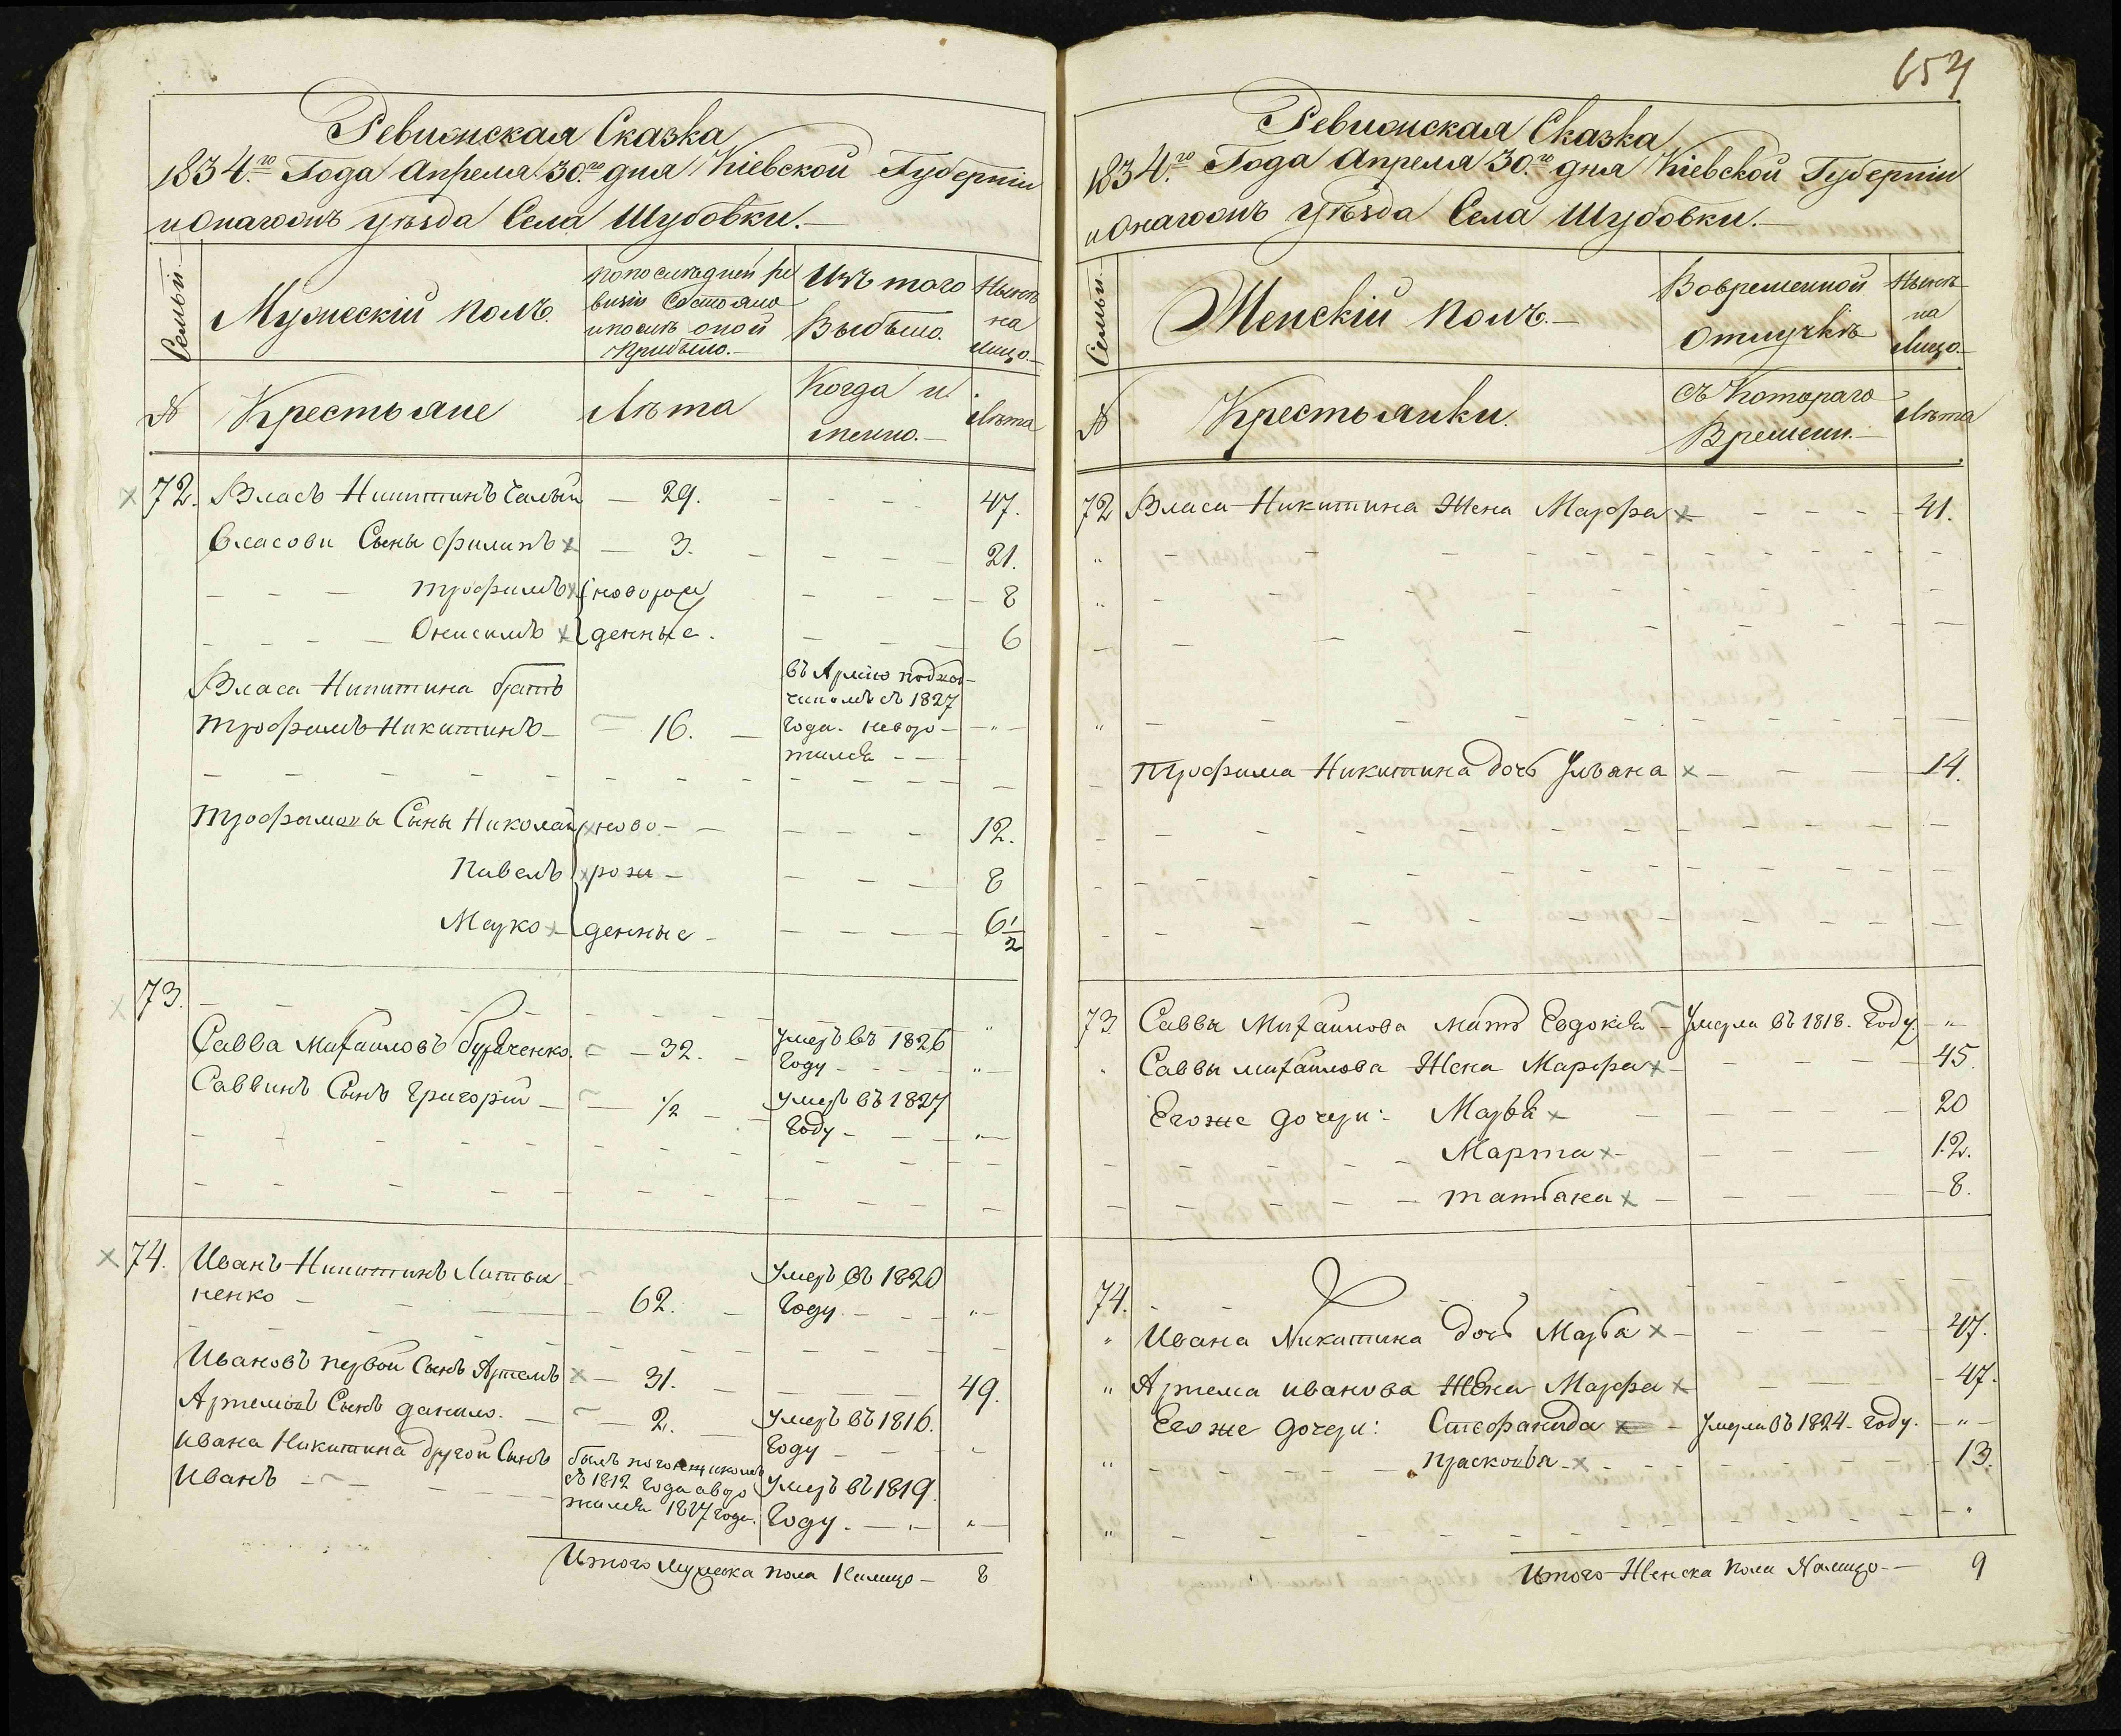 Ревижская Сказка
1834.го Года Апреля 30.го дня Кіевской Губерніи
и Онагожъ уѣзда Села Шубовки.
Семьи
Мужескій полъ.
по последней ре
визіи Состояло
и после оной
Прибыло.
Изъ того
Выбыло.
Нынѣ
на
Лицо.
№
Крестьяне
Лѣта
Когда и
менно.
Лѣта
72. Власъ Никитинъ Чалый 29. 47.
Власови Сыны Филипъ 3. 21.
Трофимъ новорож 8
Онисимъ денные. 6
Власа Никитина братъ
Трофимъ Никитинъ 16.
въ Армію
съ 1827
Года. неворо
тился
Трофимовы Сыны Николай ново 12.
Павелъ рож 8
Марко денные 6 1/2
73.
Савва Михайловъ Бурдченко. 32. умеръ въ 1826
Году
Саввинъ Сынъ Григорій 1/2 умеръ въ 1827
Году
74. Иванъ Никитинъ Литви
ненко 62. Умеръ въ 1820
Году.
Ивановъ первой Сынъ Артемъ 31. 49.
Артемовъ Сынъ данило. 2. Умеръ въ 1816.
Году
Ивана Никитина другой Сынъ
Иванъ
былъ погонщикомъ
съ 1812 Года а воро
тился 1817 Года.
Умеръ въ 1819.
Году.
Итого Мужеска пола Налицо 8
654
Ревижская Сказка
1834.го Года Апреля 30.го дня Кіевской Губерніи
и Онагожъ уѣзда Села Шубовки.
Семьи
Женскій полъ.
Вовременной
Отлучкѣ
Нынѣ
на
Лицо.
№
Крестьянки.
Съ Котораго
Времени.
Лѣта
72 Власа Никитина Жена Марфа 41.
Трофима Никитина дочь Ульяна 14.
73 Саввы Михайлова мать Евдокія Умерла въ 1818. Году
Саввы михайлова Жена Марфа 45.
Его же дочери: Марья 20
Марта 12.
татьяна 8.
74.
Ивана Никитина дочь Марья 47.
Артема иванова Жена Марфа 47.
Его же дочери: Стефанида Умерла въ 1824. Году.
прасковья 13.
Итого Женска пола Налицо 9